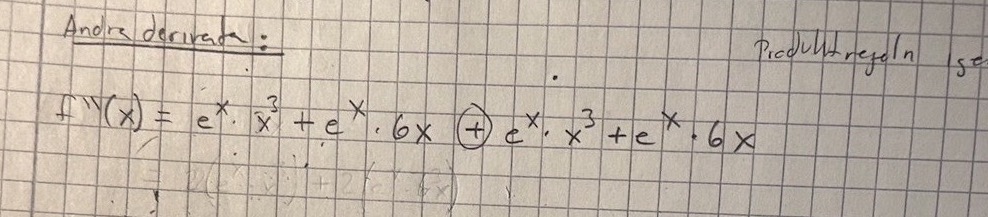 Andra derivata:
Produktregeln
f''(x) = e^x · x^3 + e^x · 6x + e^x · x^3 + e^x · 6x